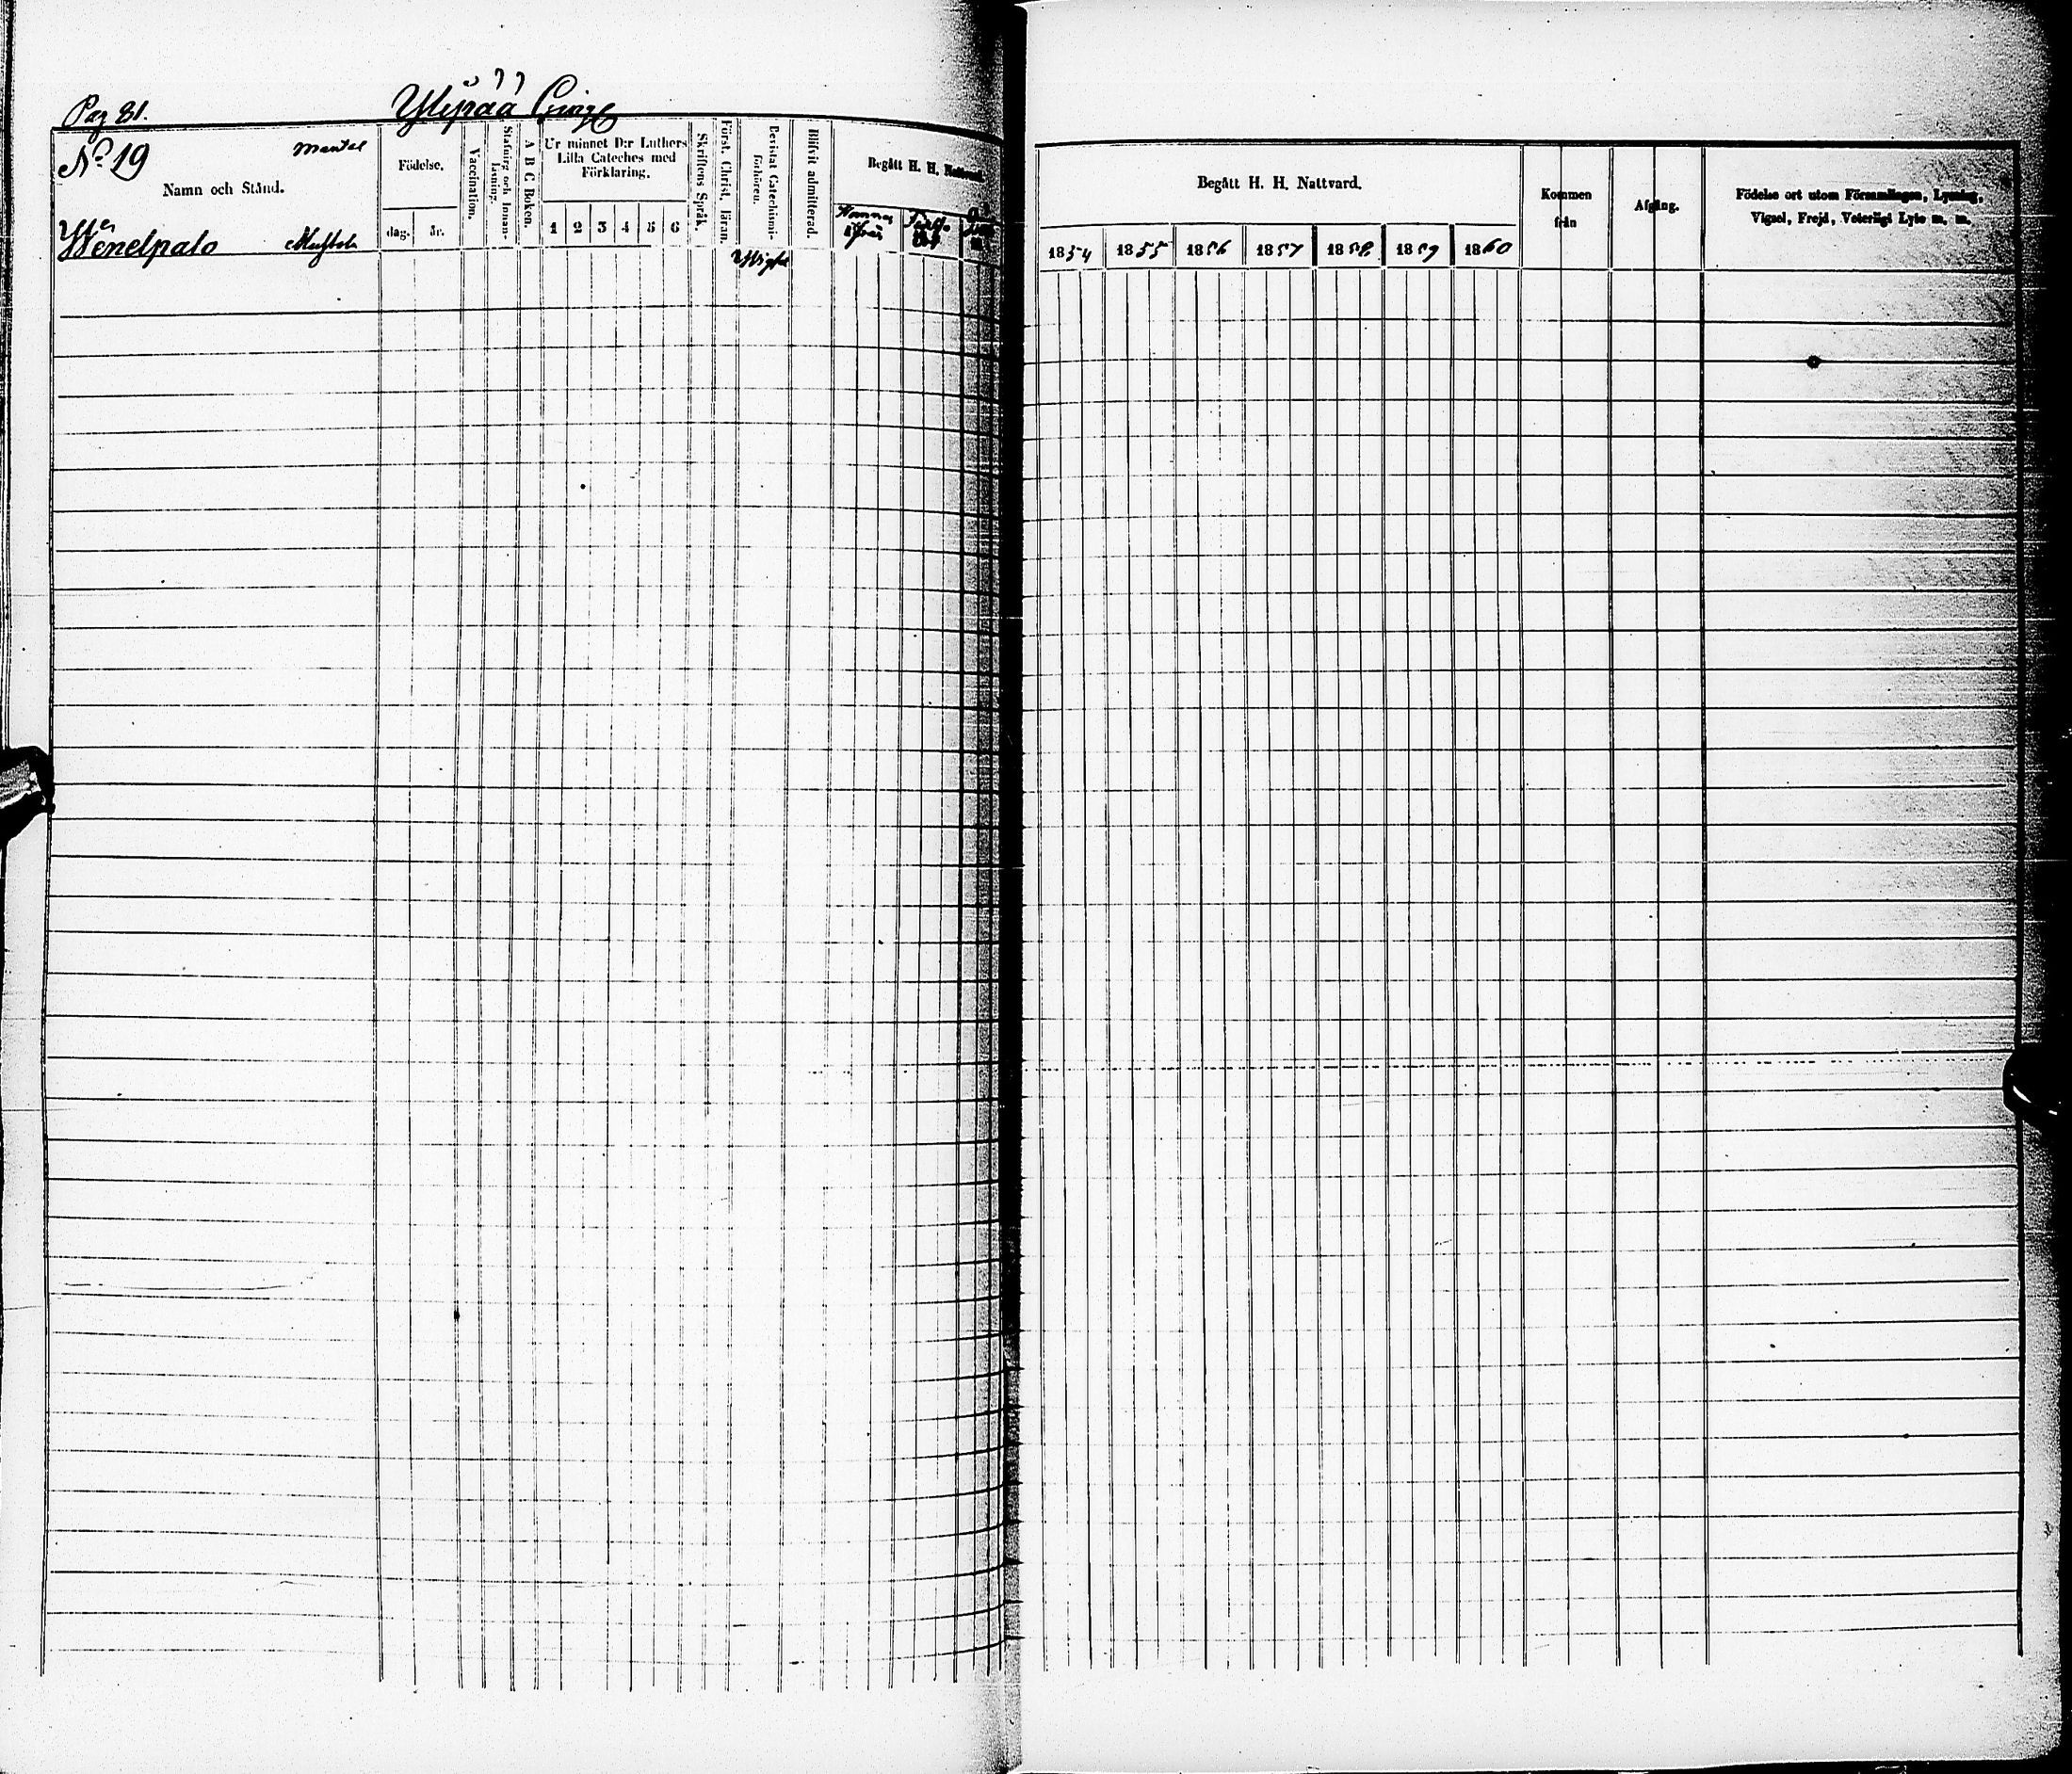 Pag 81. Ylipää
No 19 Mantal
Namn och Stånd.
Wenelpalo
Födelse.
dag. år.
Vaccination.
Stafning och Innan-
läsning.
A B C Boken.
Ur minnet D:r Luthers
Lilla Cateches med
Förklaring.
1 2 3 4 5 6
Skriftens Språk.
Först. Christ. läran.
Bevistat Catechismi-
förhören.
Blifvit admitterad.
Begått H. H. Nattvard.
Begått H. H. Nattvard.
1854 1855 1856 1857 1858 1859 1860
Kommen
från
Afgång.
Födelse ort utom Församlingen, Lysning,
Vigsel, Frejd, Veterligt Lyte m. m.